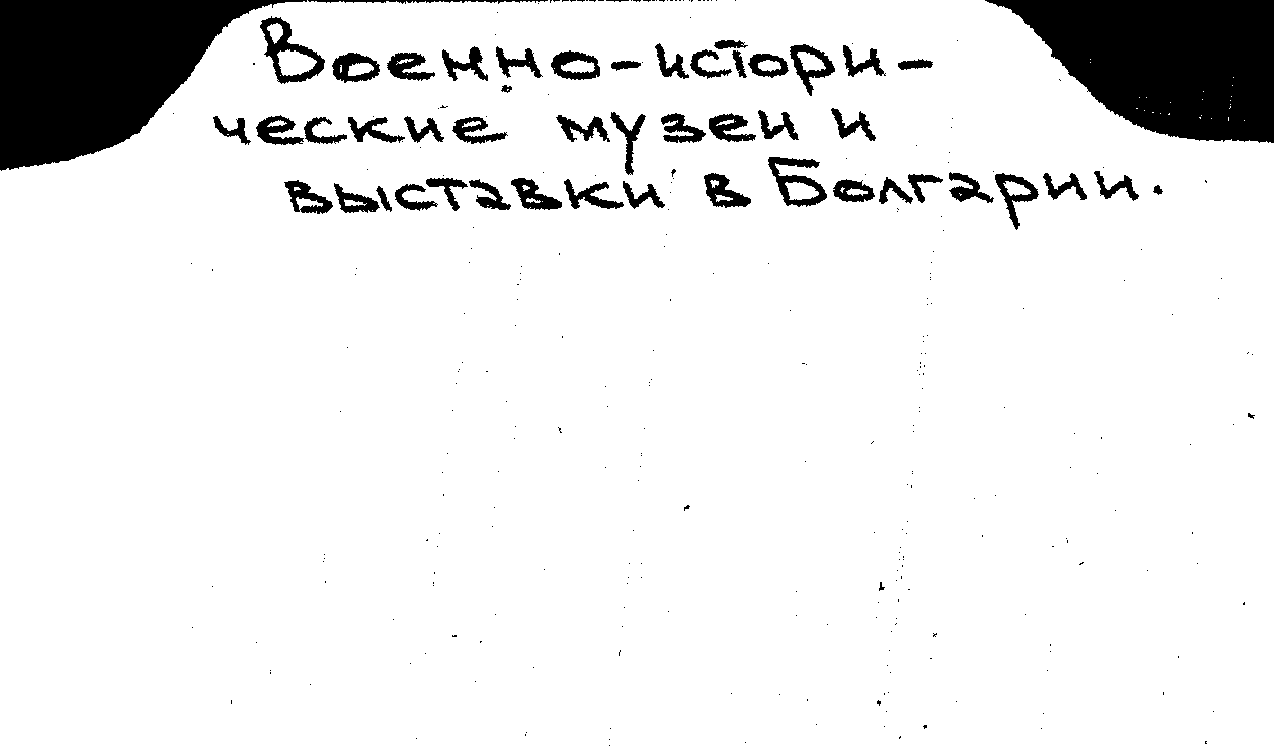 Военно-истори-
ческие музеи и
выставки в Болгарии.